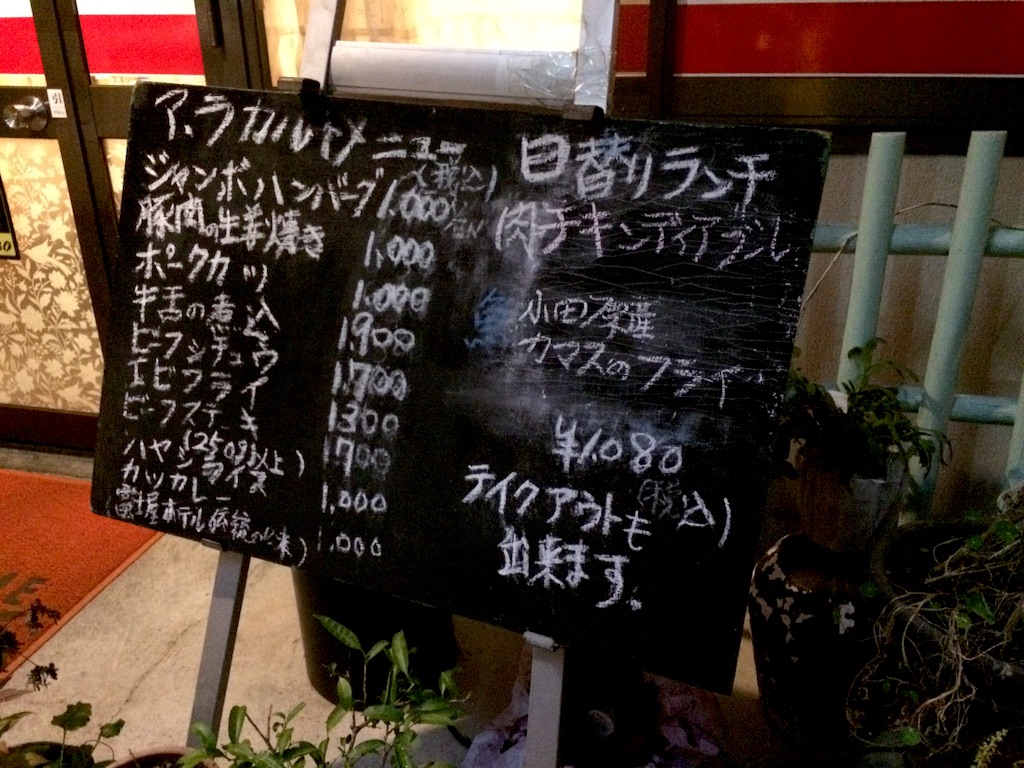 ア、ラカルトメニュー
(税込)
ジャンボハンバーグ 1,000円
豚肉の生姜焼き 1,000
ポークカツ 1,000
牛舌の煮込 1,900
ビーフシチュウ 1,700
エビフライ 1300
ビーフステーキ 1700
(250g以上)
ハヤシライス 1,000
カツカレー 1,000
ホテル伝統の
日替りランチ
肉 チキンディアブル
魚 小田原産
カマスのフライ
¥1,080
(税込)
テイクアウトも
出来ます。